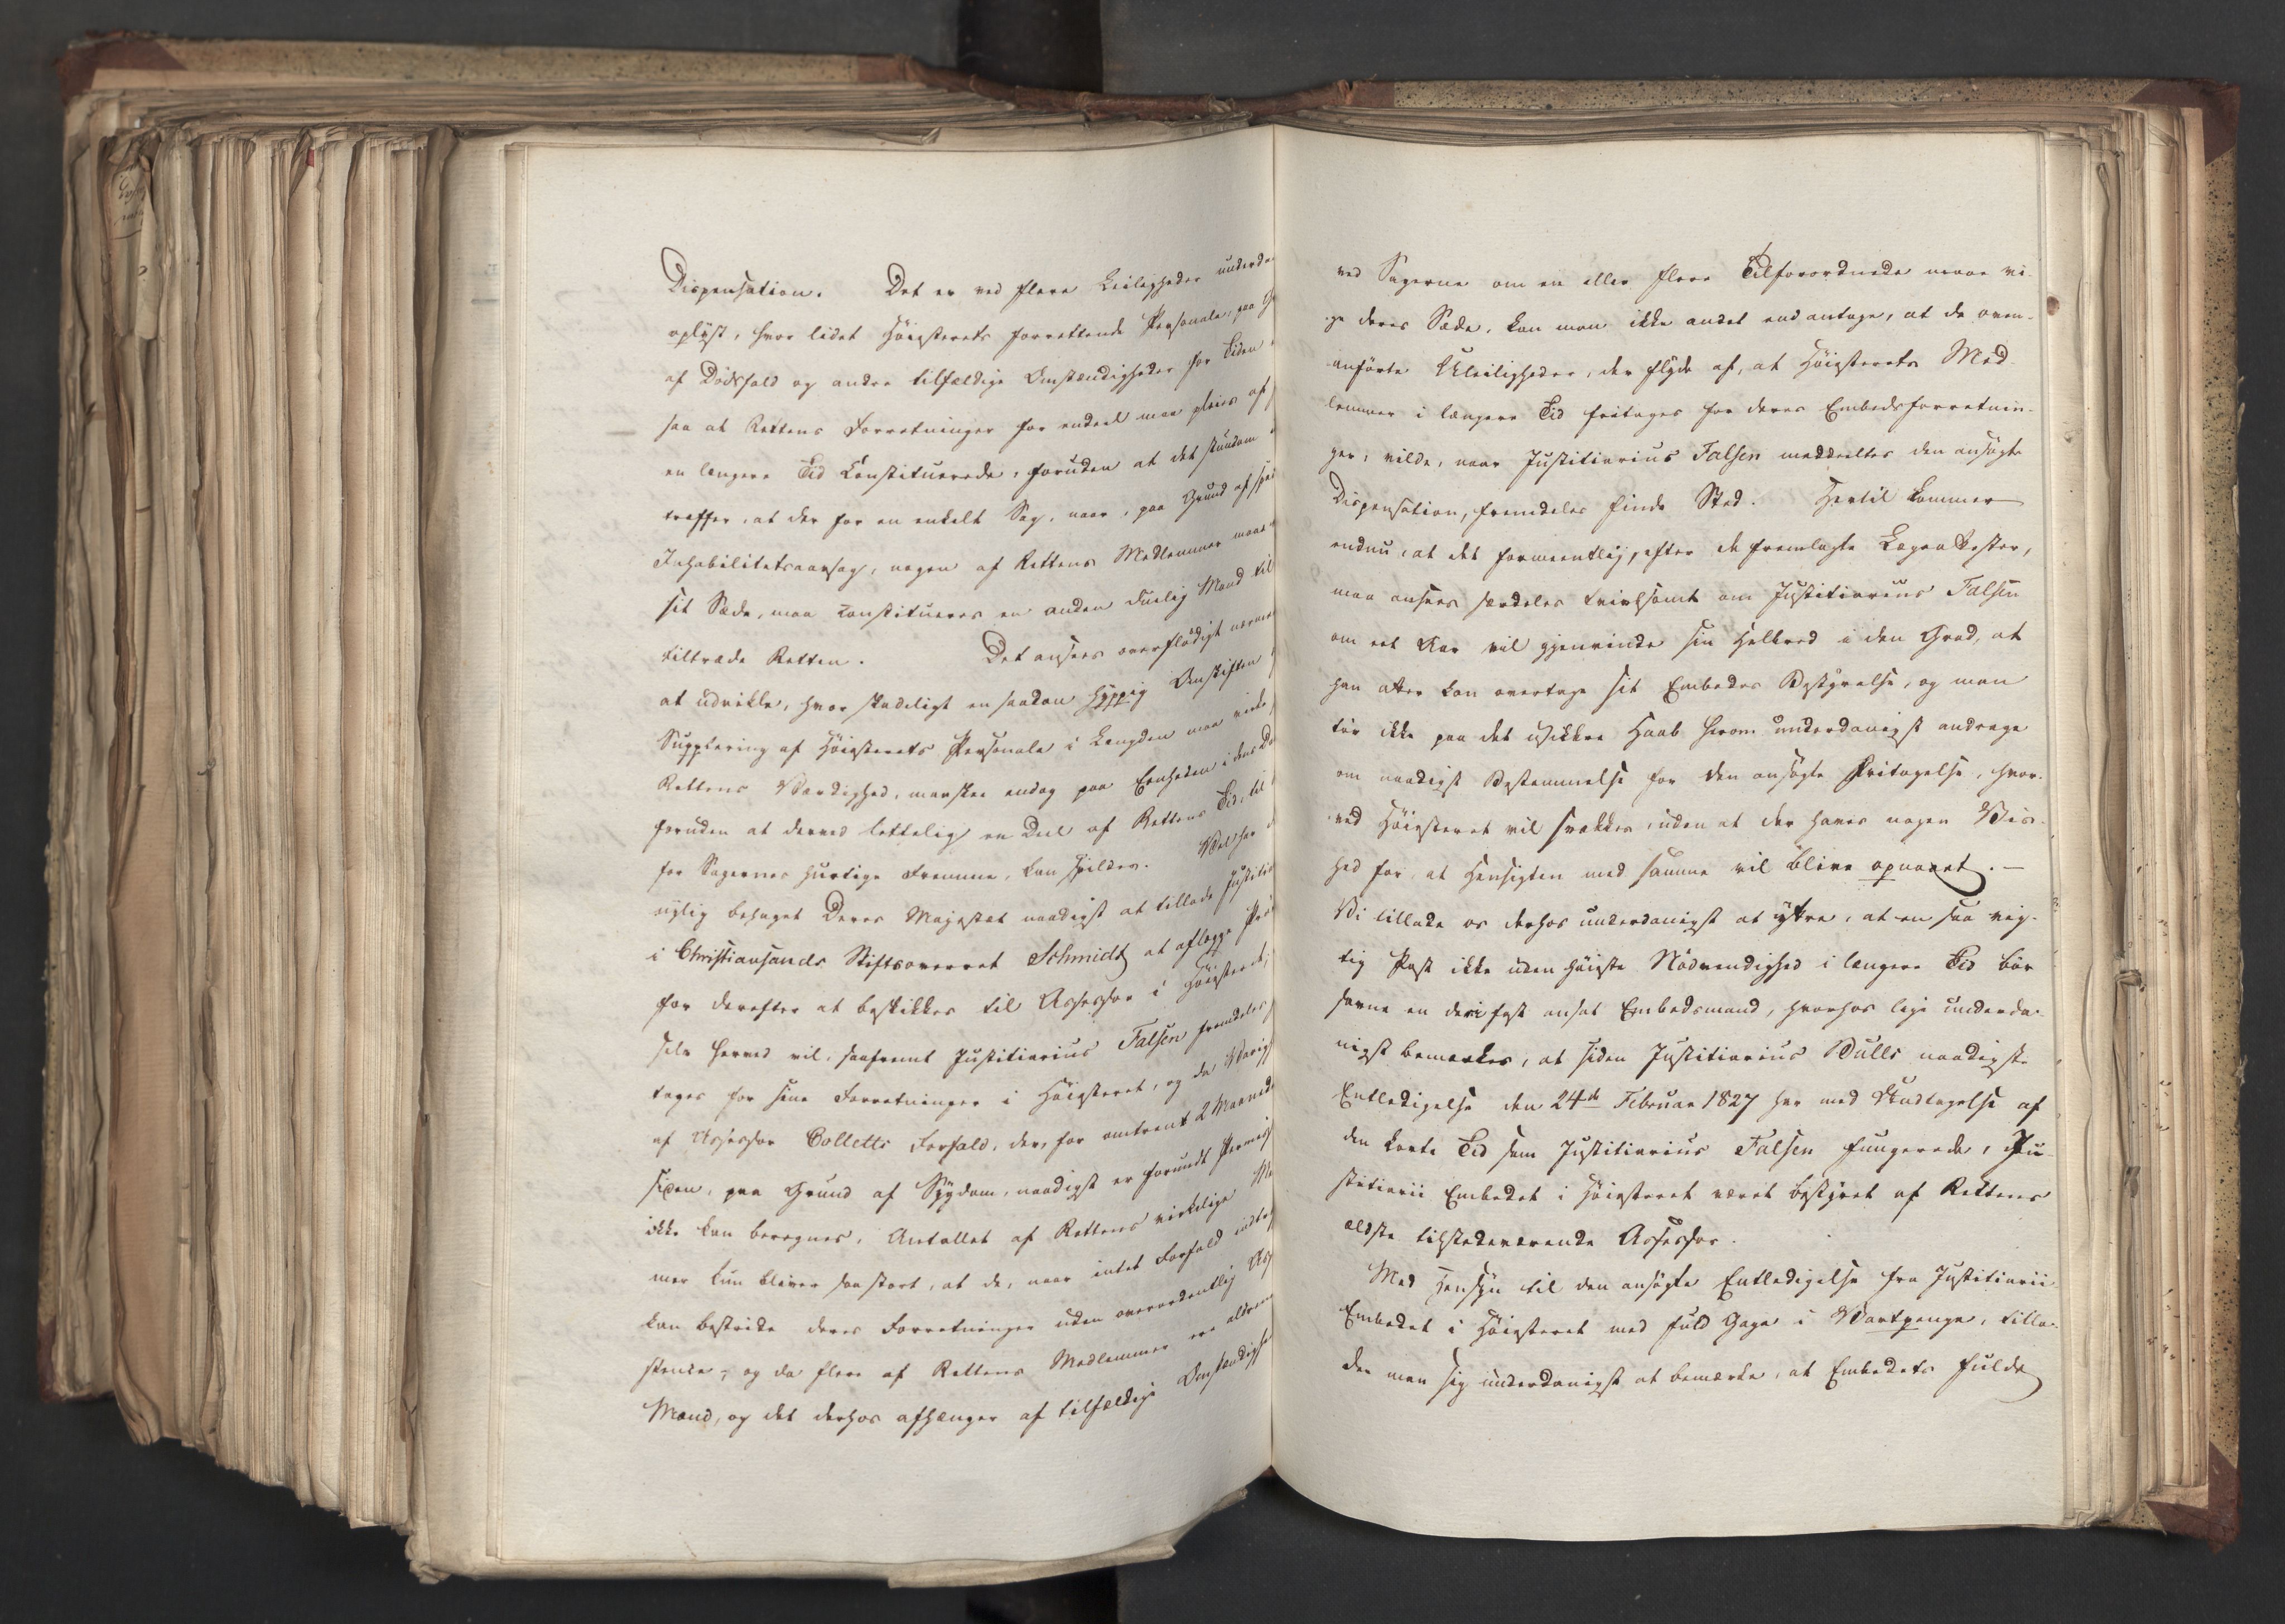 Dispensation. Det er ved flere Leiligheder underda
oplyst, hvor lidet Höiesterets forrettende Personale, paa G
af Dödsfald og andre tilfældige Omstændigheder for Tiden
saa at Rettens Forretninger for endeel maa pleies af
en længere Tid Constituerede, foruden at det stundom
træffer, at der for en enkelt Sag, naar, paa Grund af spe
Inhabilitetsaarsag, nogen af Rettens Medlemmer maae
sit Sæde, maa constitueres en anden duelig Mand til
tiltræde Retten. Det ansees overflödigt nærmer
at udvikle, hvor skadeligt en saadan hyppig Omskiften
Supplering af Höiesterets Personale i Længden maa virke
Rettens Værdighed, maaskee endog paa Eenheden i dens Do
foruden at derved lettelig en Deel af Rettens Tid, til
for Sagernes hurtige Fremme, kan spildes. Vel har
nylig behaget Deres Majestæt naadigst at tillade Justitia
i Christiansands Stiftsoverret Schmidt at aflægge Prö
for derefter at beskikkes til Assessor i Höiesteret,
selv herved vil, saafremt Justitiarius Falsen fremdeles
tages for sine Forretninger i Höiesteret, og da Varig
af Assessor Colletts Forfald, der, for omtrent 2 Maaned
siden, paa Grund af Sygdom, naadigst er forundt Permis
ikke kan beregnes, Antallet af Rettens virkelige Me
mer kun bliver saa stort, at de, naar intet Forfald indtr
kan bestride deres Forretninger uden overordentlig As
stence; og da flere af Rettens Medlemmer ere aldrend
Mænd, og det derhos afhænger af tilfældige Omstændighe
ved Sagerne om en eller flere Tilforordnede maae vi-
ge deres Sæde, kan man ikke andet end antage, at de oven-
anförte Uleiligheder, der flyde af, at Höiesterets Med-
lemmer i længere Tid fritages for deres Embedsforretnin-
ger, vilde, naar Justitiarius Falsen meddeeltes den ansögte
Dispensation, fremdeles finde Sted. Hertil kommer
endnu, at det formeentlig, efter de fremlagte Lægeattester,
maa ansees særdeles tvivlsomt om Justitiarius Falsen
om eet Aar vil gjenvinde sin Helbred i den Grad, at
han atter kan overtage sit Embedes Bestyrelse, og man
tör ikke paa det usikkre Haab herom underdanigst andrage
om naadigst Bestemmelse for den ansögte Fritagelse, hvor-
ved Höiesteret vil svækkes, uden at der haves nogen Vis-
hed for, at Hensigten med samme vil blive opnaaet. —
Vi tillade os derhos underdanigst at yttre, at en saa vig-
tig Post ikke uden höieste Nödvendighed i længere Tid bör
savne en deri fast ansat Embedsmand, hvorhos lige underda-
nigst bemærkes, at siden Justitiarius Bulls naadigste
Entledigelse den 24de Februar 1827 har med Undtagelse af
den korte Tid som Justitiarius Falsen fungerede, Ju-
stitiarii Embedet i Höiesteret været bestyret af Rettens
ældste tilstedeværende Assessor.
Med Hensyn til den ansögte Entledigelse fra Justitiarii
Embedet i Höiesteret med fuld Gage i Vartpenge, tilla-
der man sig underdanigst at bemærke, at Embedets fulde